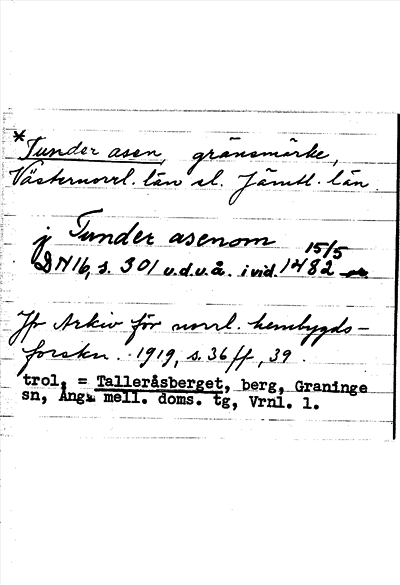 * Tunder asen, gränsmärke,
Västernorrl. län el. Jämtl. län
j Tunder asenom
DN 16, s. 301 u.d.u.å. i vid. 15/5 1482
Jfr Arkiv för norrl. hembygds-
forskn. 1919, s. 36 ff, 39.
trol. = Talleråsberget, berg, Graninge
sn, Ång. mell. doms. tg, Vrnl. l.